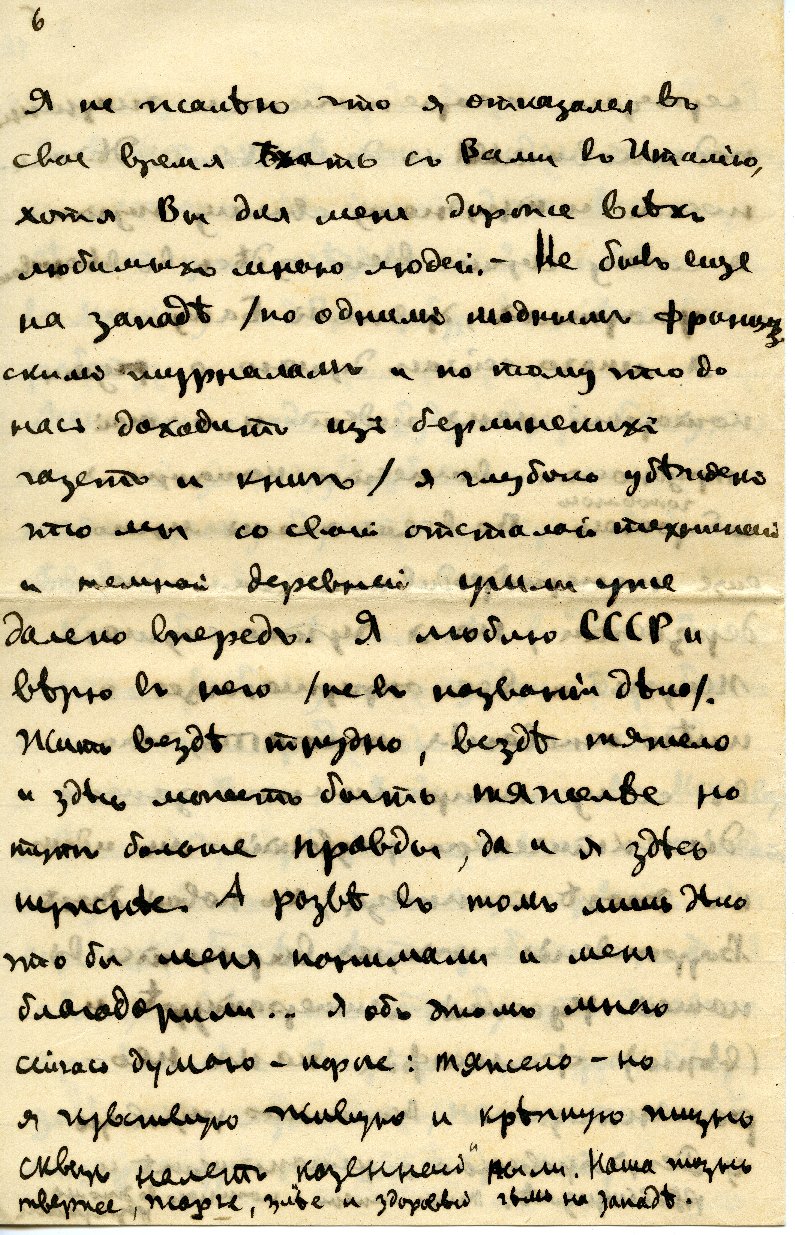 6
Я не жалѣю что я отказался въ
свое время ѣхать съ Вами въ Италію,
хотя Вы для меня дороже всѣхъ
любимыхъ мною людей. – Не бывъ еще
на западѣ /по однимъ моднымъ француз
скимъ журналамъ и по тому что до
насъ доходитъ изъ берлинскихъ
газетъ и книгъ/ я глубоко убѣжденъ
что мы со своей отсталой техникой
и темной деревней ушли уже
далеко впередъ. Я люблю СССР и
вѣрю въ него /не въ названіи дѣло/.
Жить вездѣ трудно, вездѣ тяжело
и здѣсь можетъ быть тяжелѣе но
тутъ больше правды, да и я здѣсь
нужнѣе. А развѣ въ томъ лишь дѣло
что бы меня понимали и меня
благодарили... Я объ этомъ много
сейчасъ думаю – короче: тяжело – но
я чувствую живую и крѣпкую жизнь
сквозь налетъ "казенной" пыли. Наша жизнь
тверже, жарче, злѣе и здоровѣй чѣмъ на западѣ.